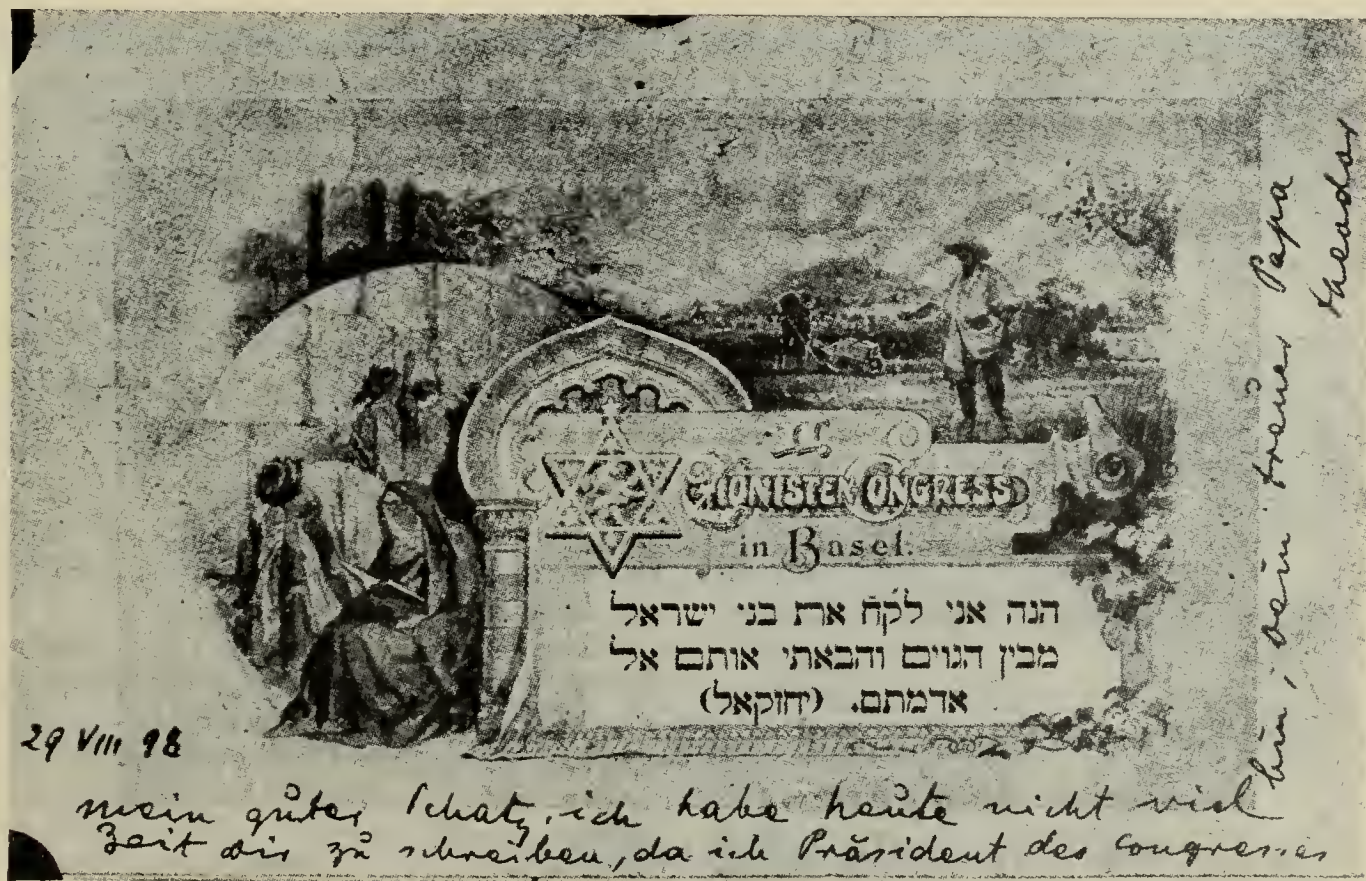 II
ZIONISTEN CONGRESS
in Basel.
הנה אני לקח את בני ישראל
מבין הגוים והבאתי אותם אל
אדמתם. (יחזקאל)
29 VIII 98
mein guter Schatz, ich habe heute nicht viel
Zeit dir zu schreiben, da ich Präsident des Congresses
bin, dein treuer Papa
Theodor